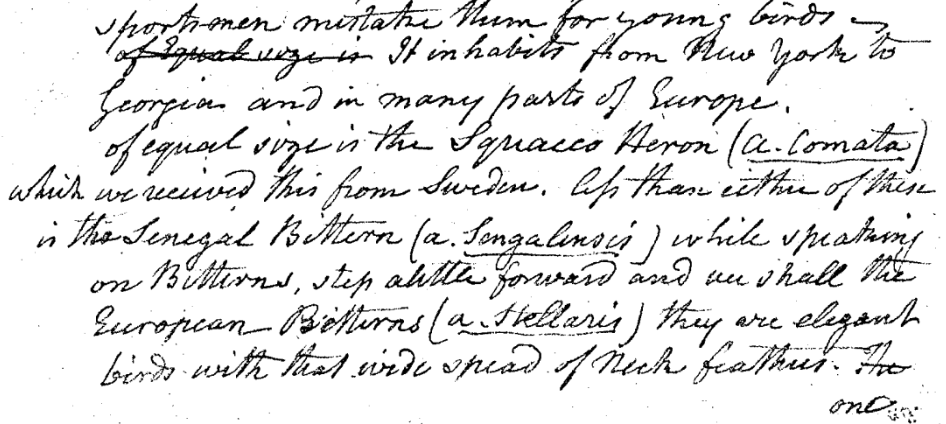 sportsmen mistake them for young birds
of Equal size is It inhabits from New York to
Georgia and in many parts of Europe.
of equal size is the Squacco Heron (a. Comata)
which we received this from Sweden. less than either of these
is the Senegal Bittern (a. Sengalensis) while speaking
on Bitterns, step alittle forward and we shall the
European Bitterns (a. Stellaris) they are elegant
birds with that wide spread of Neck feathers. The
one